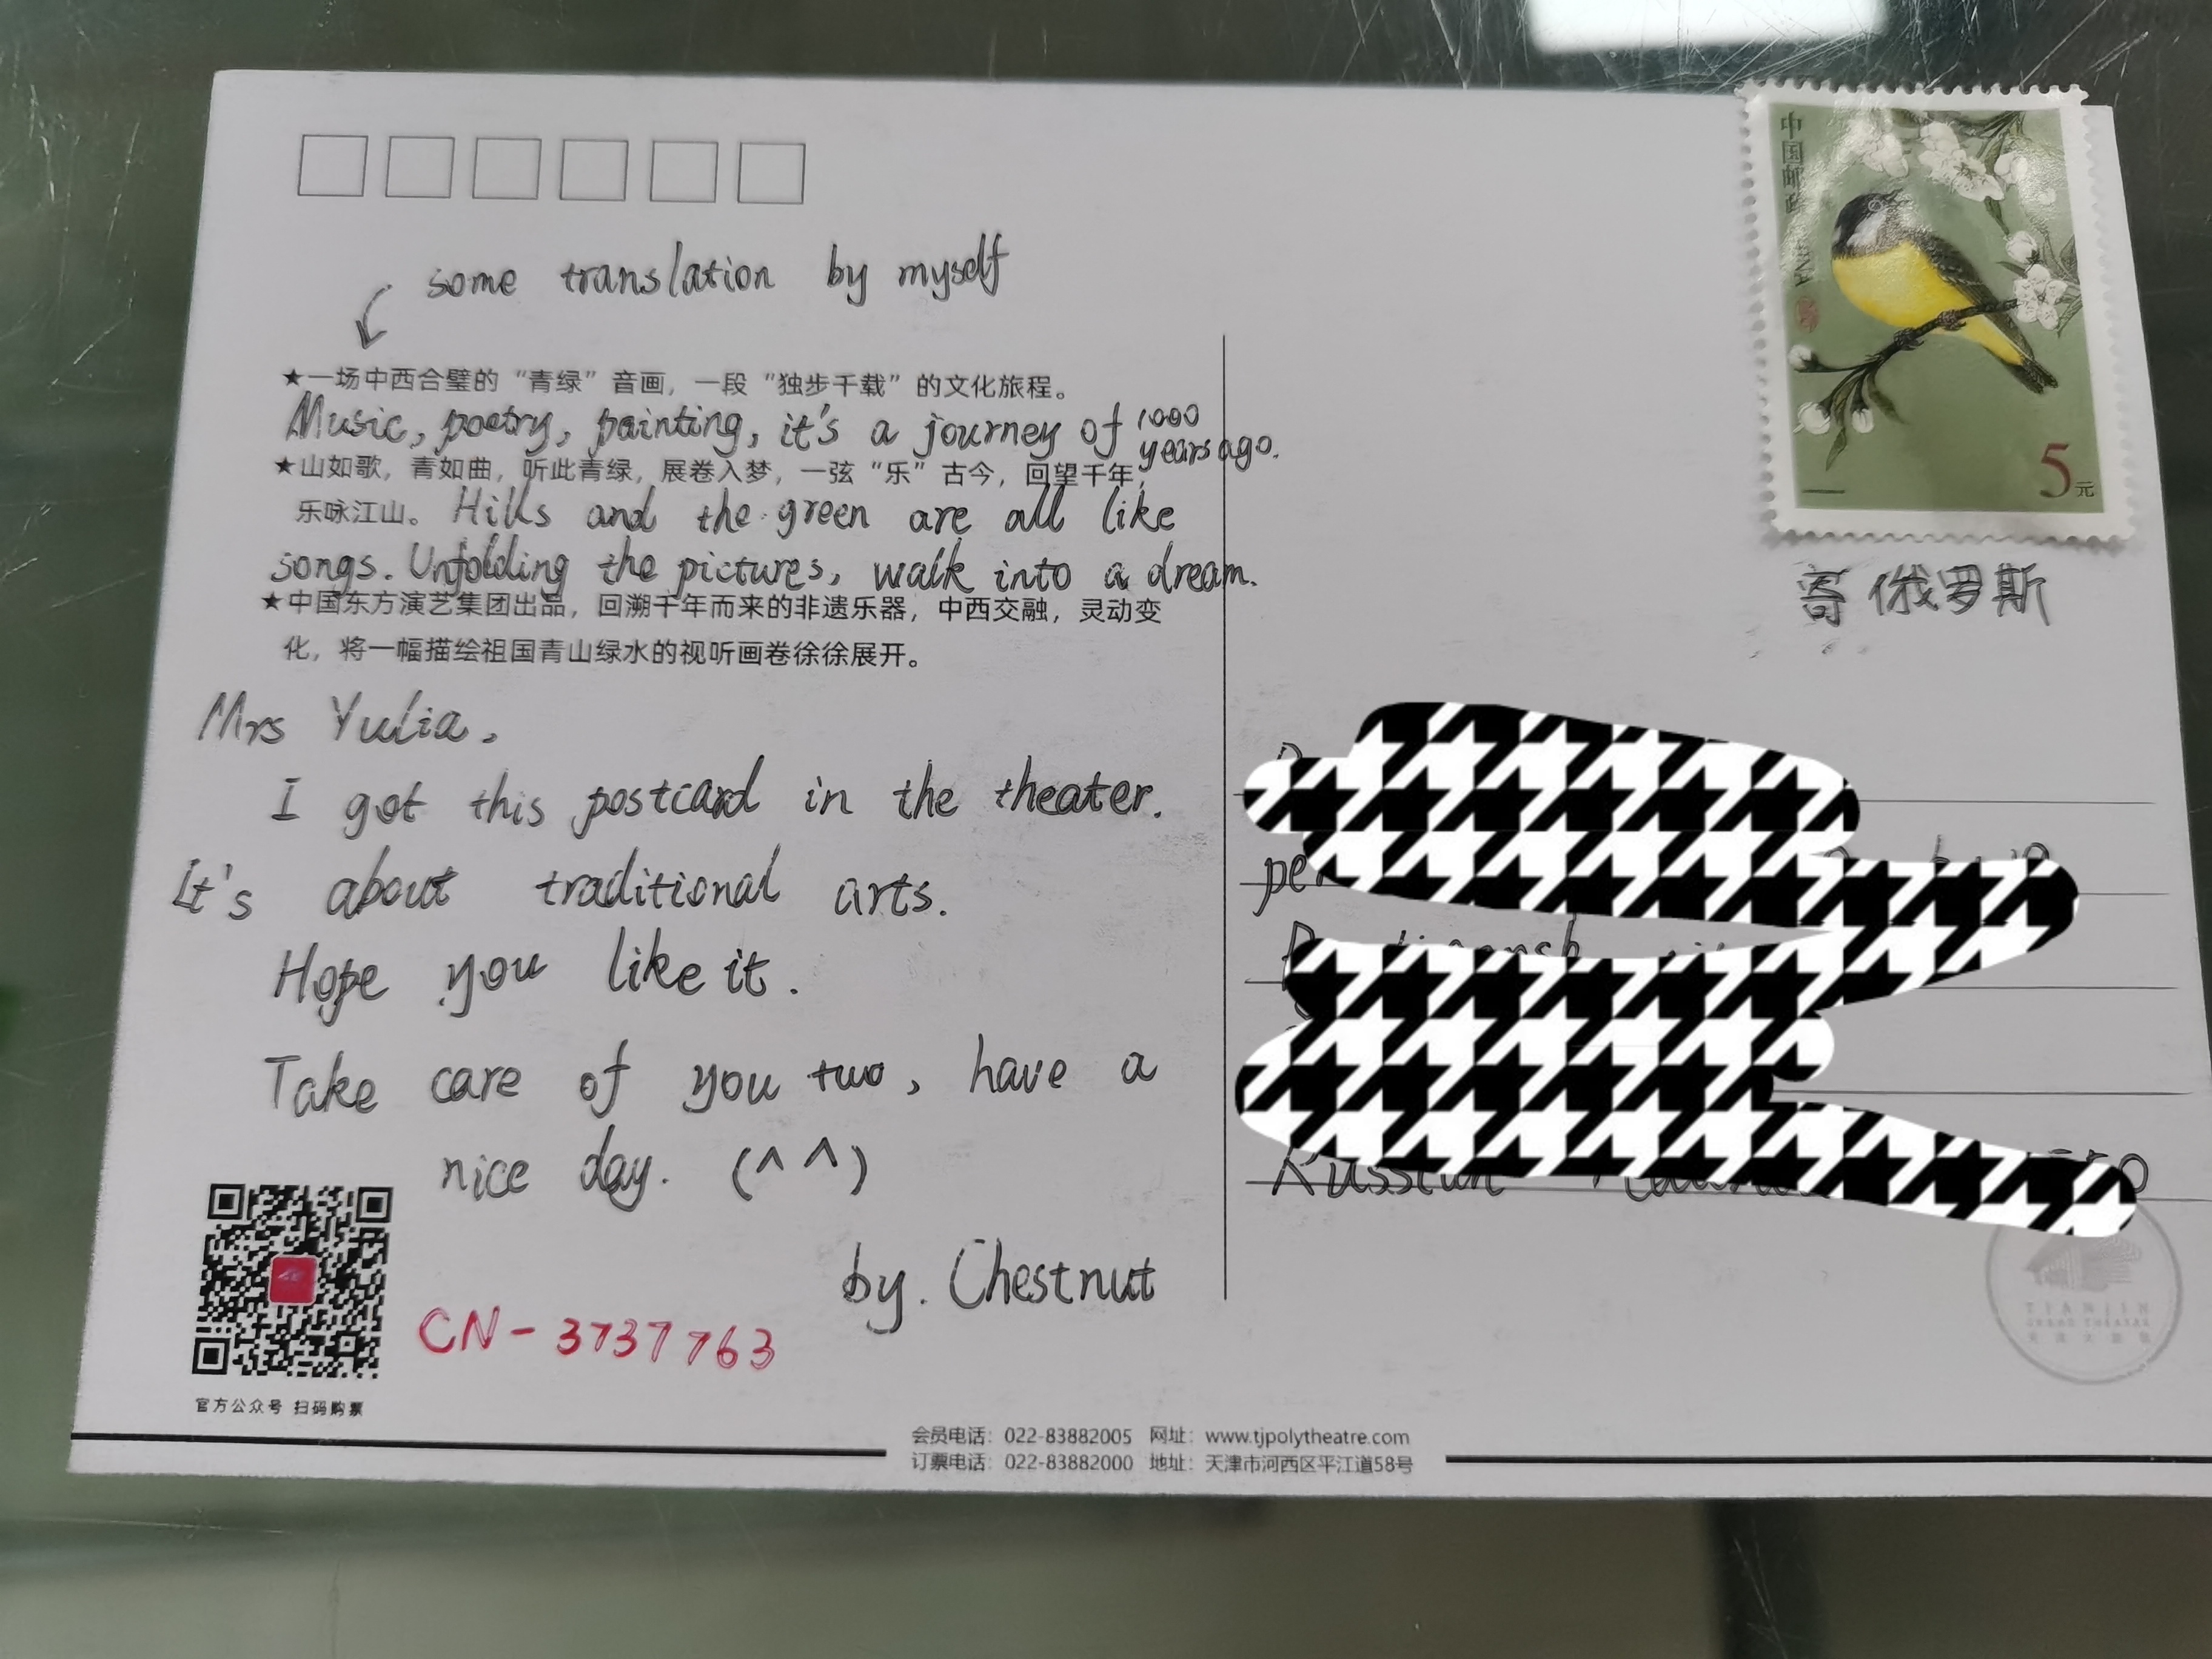 some translation by myself
★一场中西合璧的“青绿”音画，一段“独步千载”的文化旅程。
Music, poetry, painting, it's a journey of 1000
years ago.
★山如歌，青如曲，听此青绿，展卷入梦，一弦“乐”古今，回望千年，
乐咏江山。 Hills and the green are all like
songs. Unfolding the pictures, walk into a dream.
★中国东方演艺集团出品，回溯千年而来的非遗乐器，中西交融，灵动变
化，将一幅描绘祖国青山绿水的视听画卷徐徐展开。
Mrs Yulia,
I got this postcard in the theater.
It's about traditional arts.
Hope you like it.
Take care of you two, have a
nice day. (^ ^)
by. Chestnut
CN-3737763
官方公众号 扫码购票
中国邮政 CHINA
5元
寄 俄罗斯
Russian
TIANJIN
GRAND THEATRE
天津大剧院
会员电话：022-83882005 网址：www.tjpolytheatre.com
订票电话：022-83882000 地址：天津市河西区平江道58号